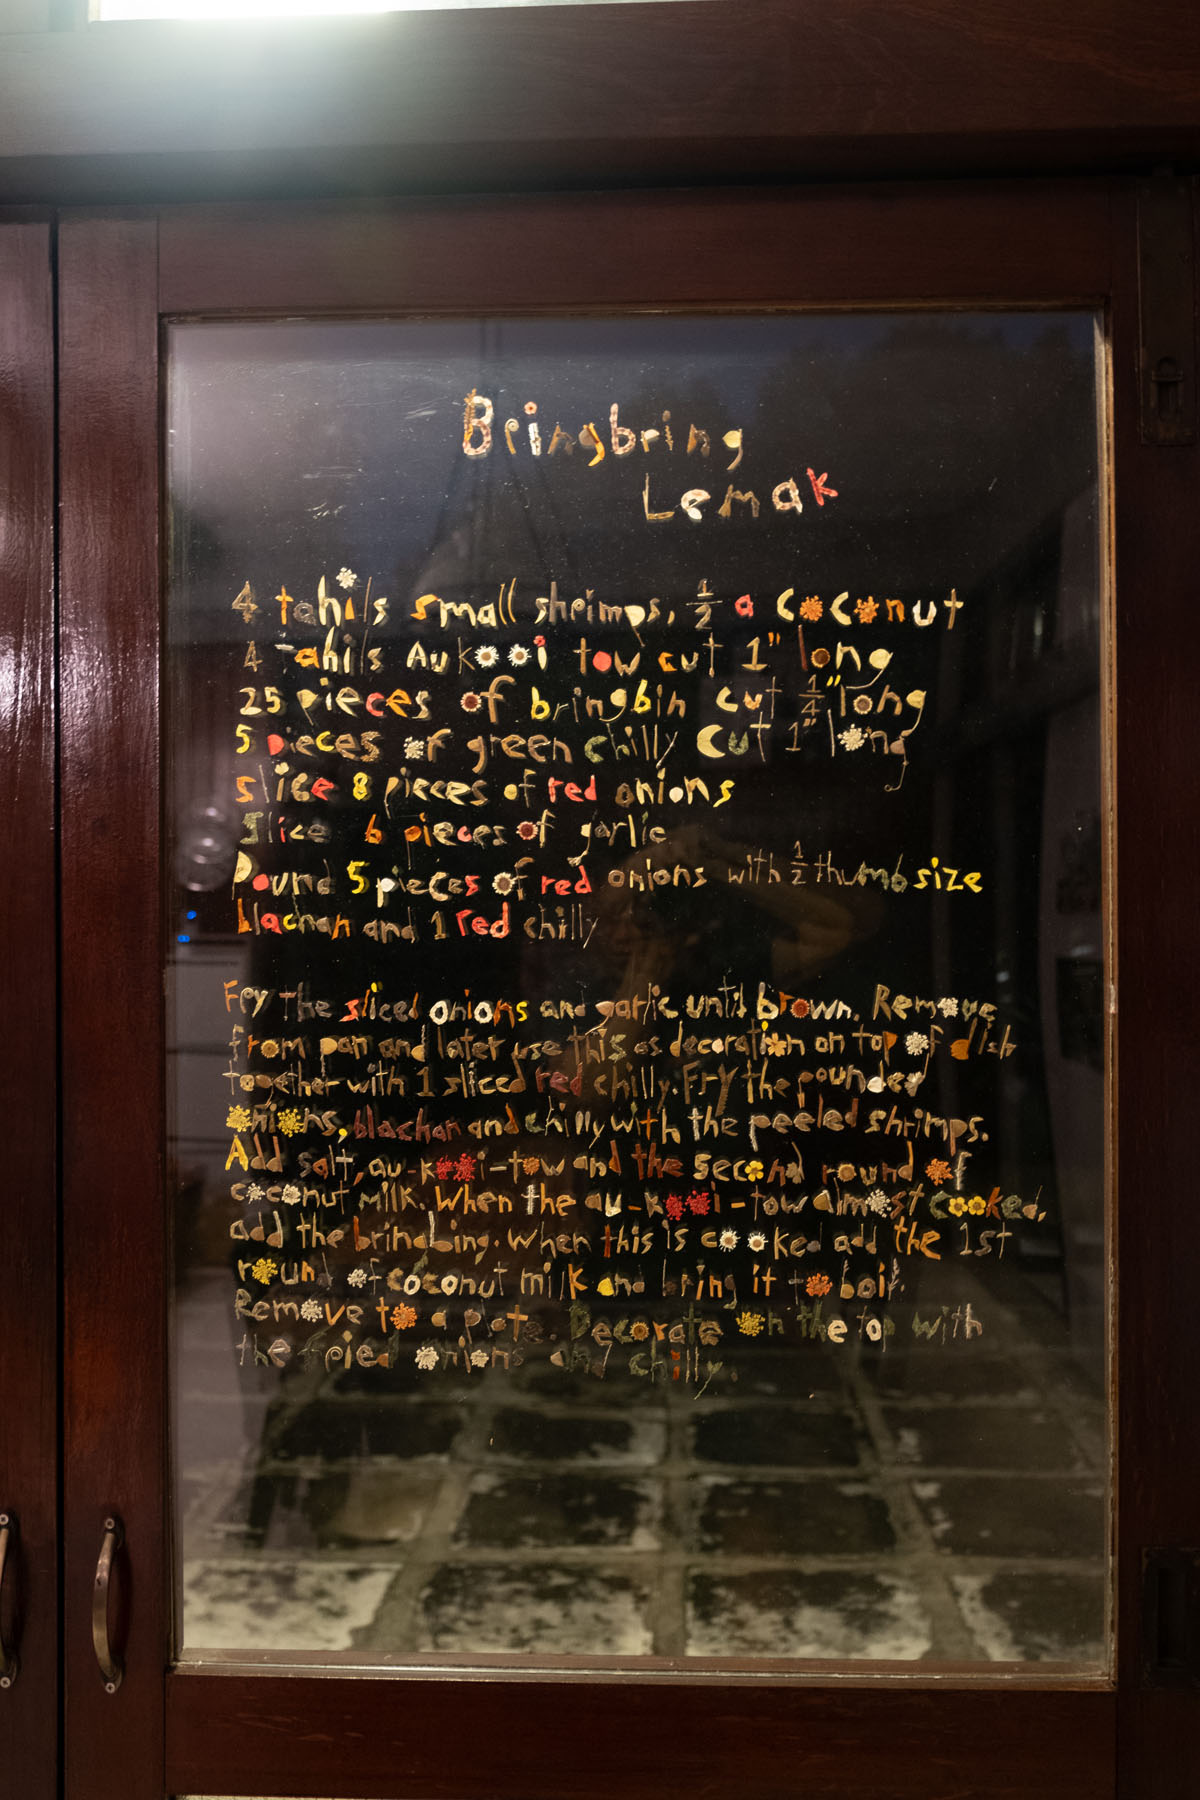 Bringbring
Lemak
4 tahils small shrimps, 1/2 a coconut
4 tahils Aukooi tow cut 1" long
25 pieces of bringbin cut 1/4" long
5 pieces of green chilly cut 1" long
slice 8 pieces of red onions
Slice 6 pieces of garlic
Pound 5 pieces of red onions with 1/2 thumb size
blachan and 1 red chilly
Fry the sliced onions and garlic until brown. Remove
from pan and later use this as decoration on top of dish
together with 1 sliced red chilly. Fry the pounded
onions, blachan and chilly with the peeled shrimps.
Add salt, au-kooi-tow and the second round of
coconut milk. When the au-kooi-tow almost cooked,
add the bringbing. When this is cooked add the 1st
round of coconut milk and bring it to boil.
Remove to a plate. Decorate on the top with
the fried onions and chilly.